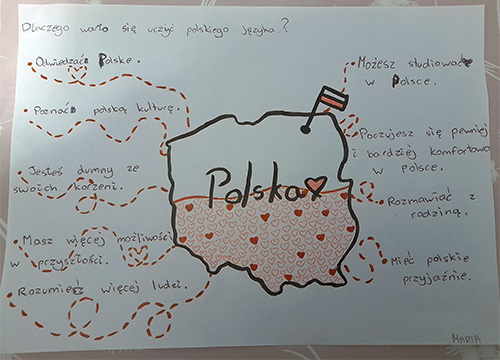 Dlaczego warto się uczyć polskiego języka..?
Odwiedzać Polskę.
Poznać polską kulturę.
Jesteś dumny ze
swoich korzeni.
Masz więcej możliwości
w przyszłości.
Rozumieć więcej ludzi.
Polska
Możesz studiować
w Polsce.
Poczujesz się pewniej
i bardziej komfortowo
w Polsce.
Rozmawiać z
rodziną.
Mieć polskie
przyjaźnie.
MARTA